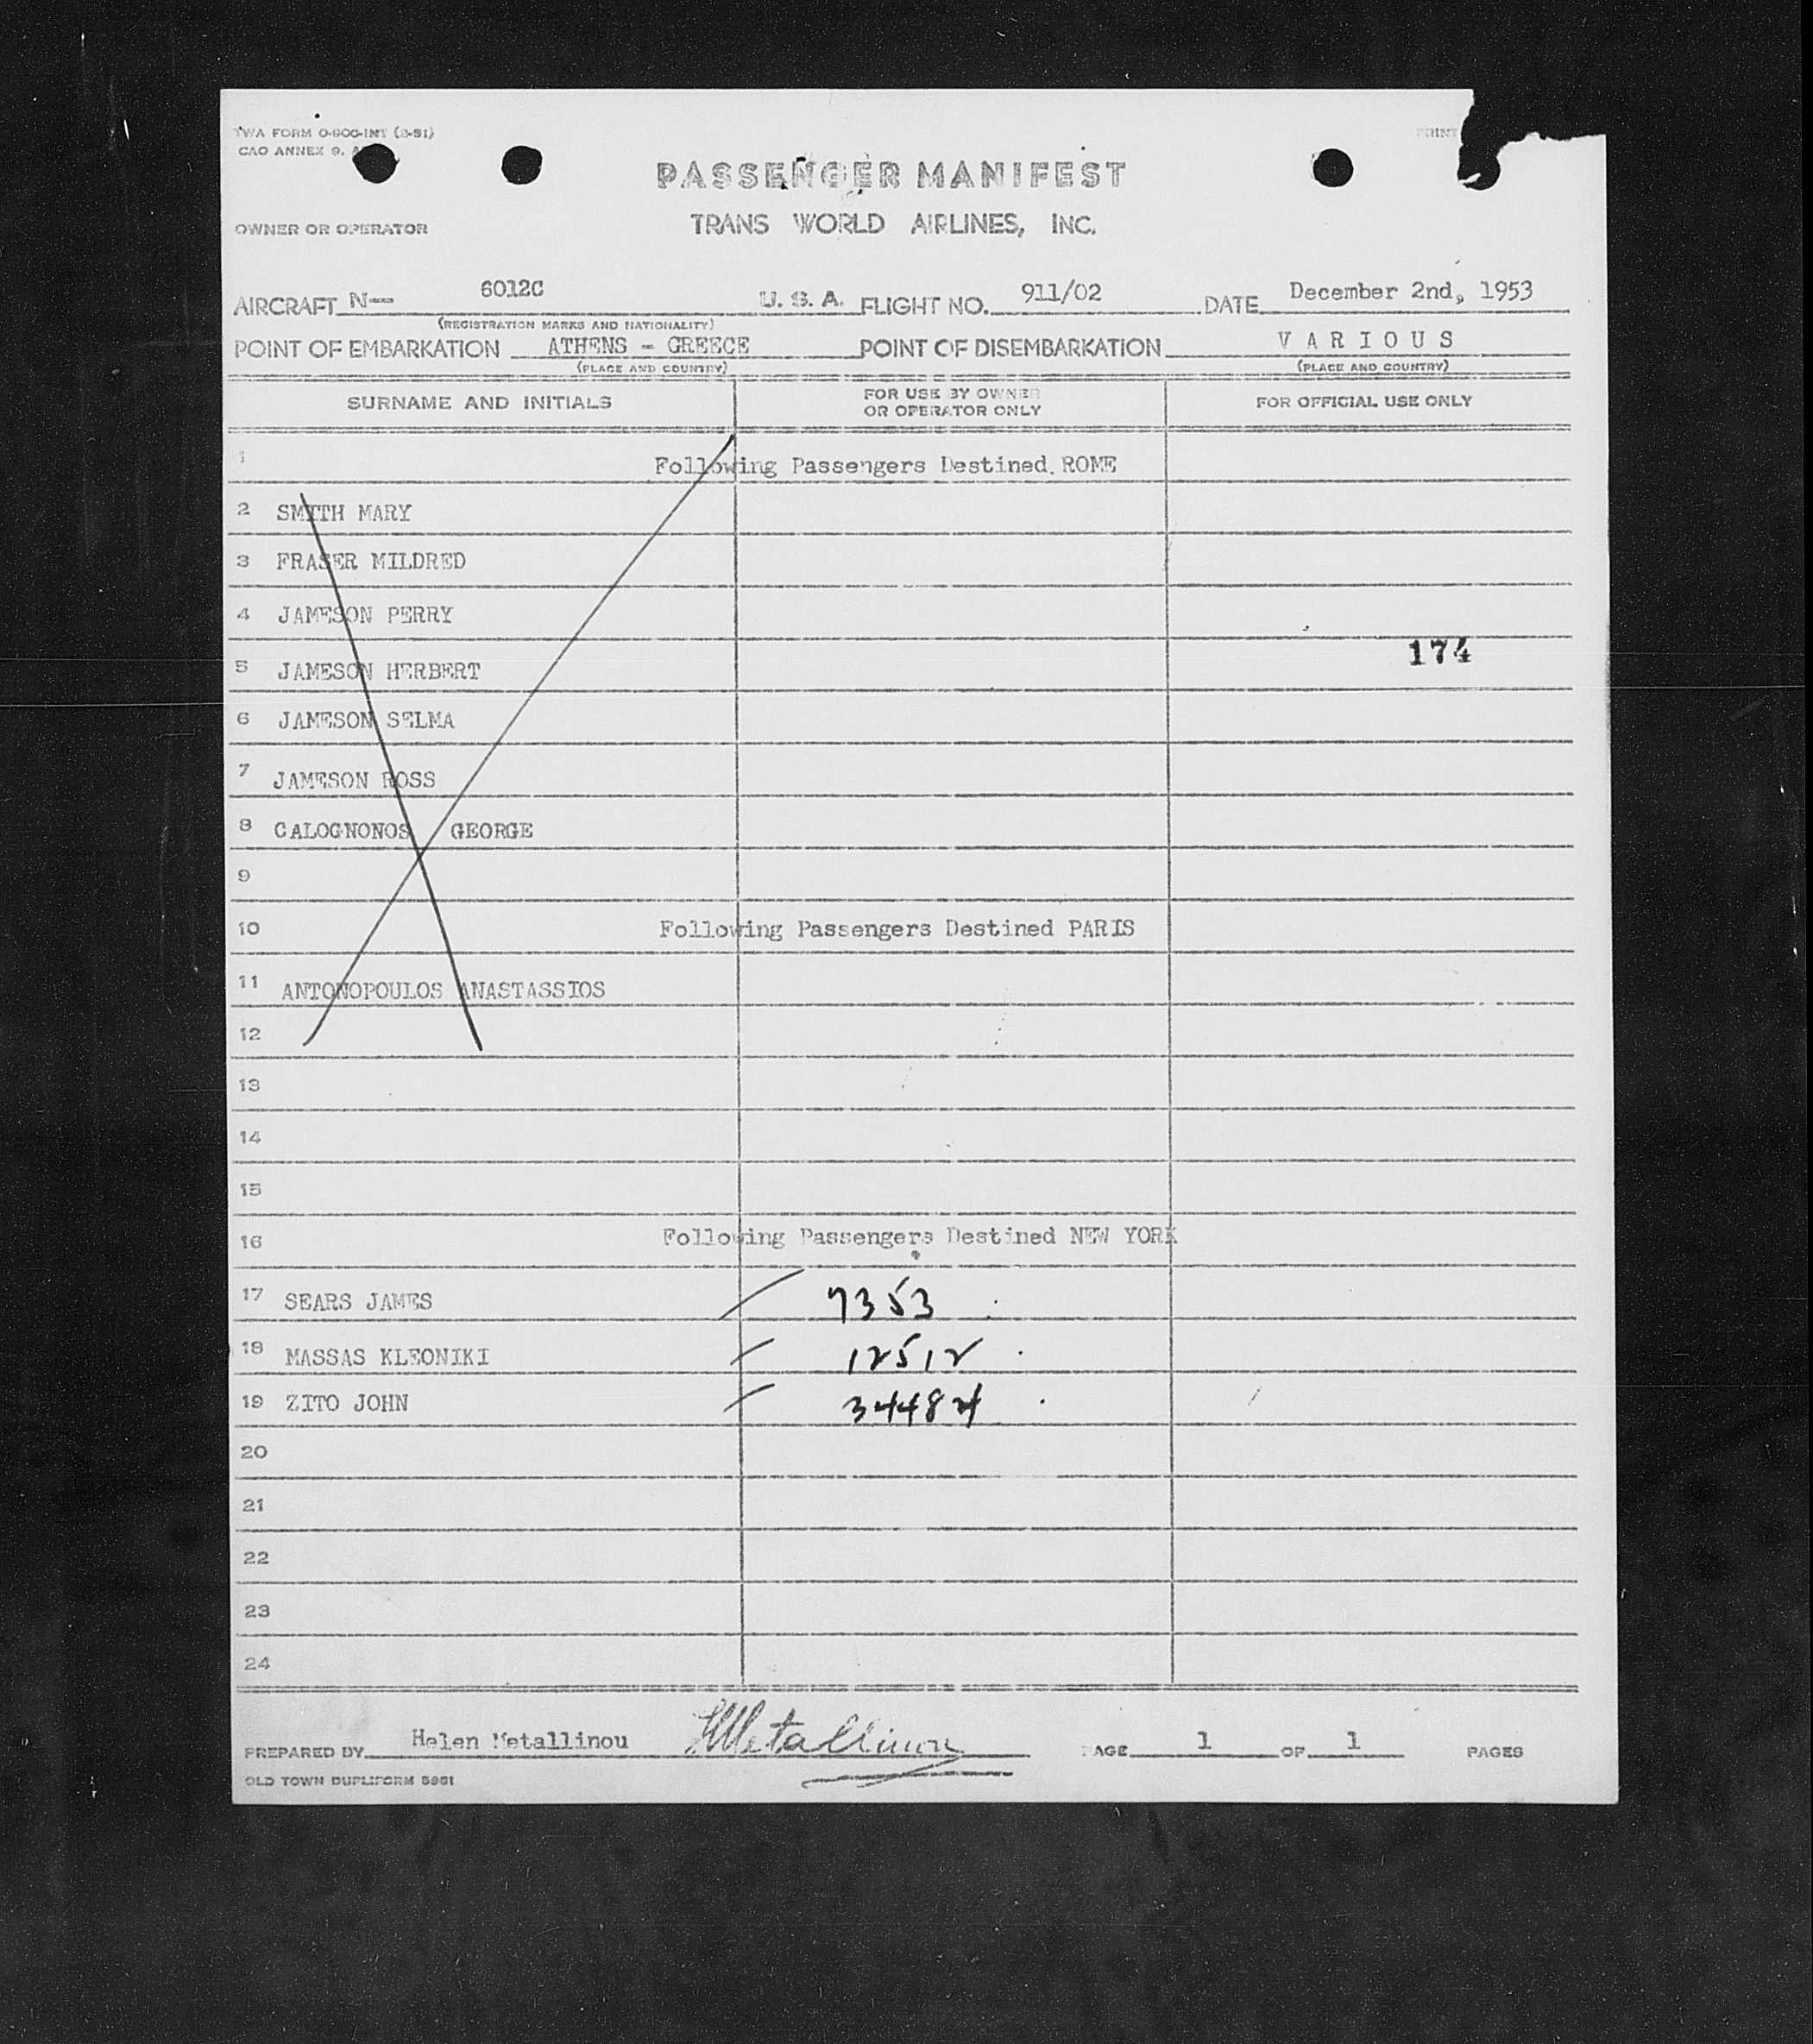 TWA FORM O-800-INT (3-51)
CAO ANNEX 9.
PRINT
PASSENGER MANIFEST
OWNER OR OPERATOR TRANS WORLD AIRLINES, INC.
AIRCRAFT N-- 6012C U. S. A. FLIGHT NO. 911/02 DATE December 2nd, 1953
(REGISTRATION MARKS AND NATIONALITY)
POINT OF EMBARKATION ATHENS - GREECE POINT OF DISEMBARKATION VARIOUS
(PLACE AND COUNTRY) (PLACE AND COUNTRY)
SURNAME AND INITIALS FOR USE BY OWNER OR OPERATOR ONLY FOR OFFICIAL USE ONLY
1 Following Passengers Destined ROME
2 SMITH MARY
3 FRASER MILDRED
4 JAMESON PERRY
174
5 JAMESON HERBERT
6 JAMESON SELMA
7 JAMESON ROSS
8 CALOGNONOS GEORGE
9
10 Following Passengers Destined PARIS
11 ANTONOPOULOS ANASTASSIOS
12
13
14
15
16 Following Passengers Destined NEW YORK
17 SEARS JAMES 7353
18 MASSAS KLEONIKI 12512
19 ZITO JOHN 34484
20
21
22
23
24
PREPARED BY Helen Metallinou HMetallinou PAGE 1 OF 1 PAGES
OLD TOWN DUPLIFORM 5951